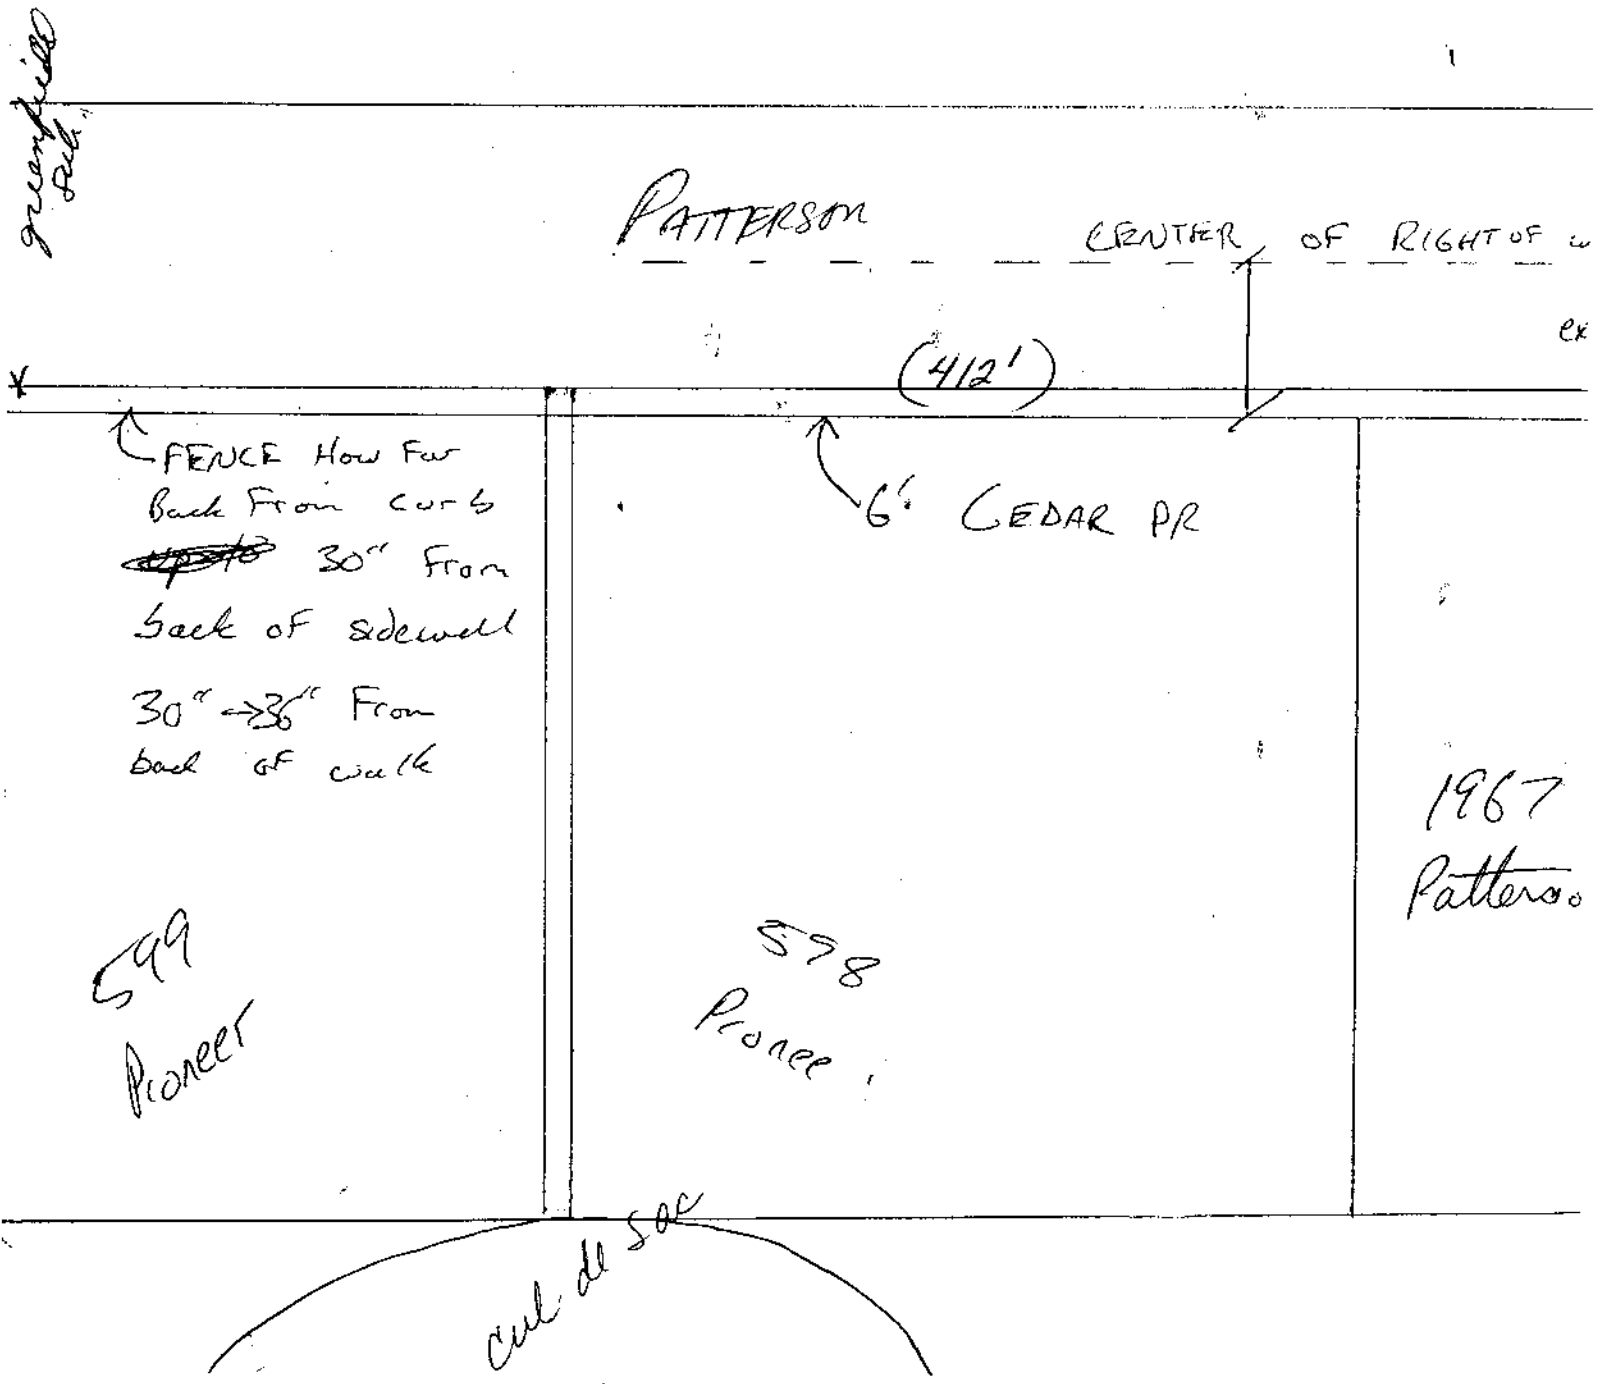 greenfield
PATTERSON
CENTER OF RIGHT OF w
ex
(412')
FENCE How Far
Back From curb
30" From
back of sidewall
30" → 36" From
back of walk
6' CEDAR PR
1967
Patterso
599
Pioneer
598
Pionee
cul de sac